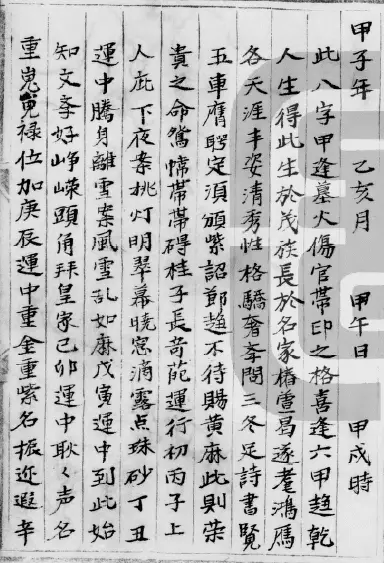 甲子年　乙亥月　甲午日　甲戌時
此八字甲逢墓火傷官帶印之格喜逢六甲趨乾
人生得此生於茂族長於名家椿萱曷遂耄鴻鴈
各天涯丰姿清秀性格驕奢李問三冬足詩書覽
五車鷹聘定須頒紫詔郎趨不待賜黃麻此則荣
貴之命鴛幃帶帶碍桂子長奇葩運行初丙子上
人庇下夜寮挑灯明翠幕曉窓滴露点珠砂丁丑
運中騰身離雪案風雪乱如麻戊寅運中到此始
知文李好崢嶸頭角拜皇家已卯運中耿々声名
重嵬嵬禄位加庚辰運中重金重紫名振迩遐辛